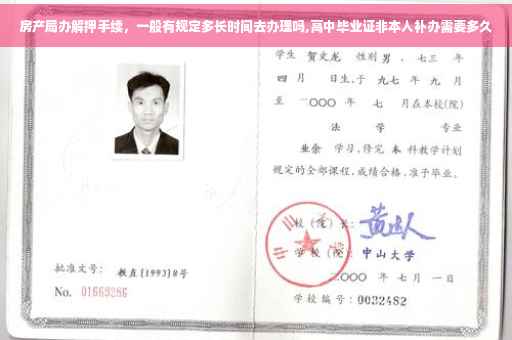 房产局办解押手续，一般有规定多长时间去办理吗,高中毕业证非本人补办需要多久
学生 贺文龙 性别 男 、 七三 年
四 月 日生,于 九七 年 九 月
至 二〇〇〇 年 七 月在本校(院)
法 学 专业
业余 学习,修完 本 科教学计划
规定的全部课程,成绩合格,准予毕业。
校(院)长:
学 校(院): 中山大学
二〇〇〇 年 七 月 一 日
学校编号: 0032482
批准文号: 教直(1993)8号
No. 01669286